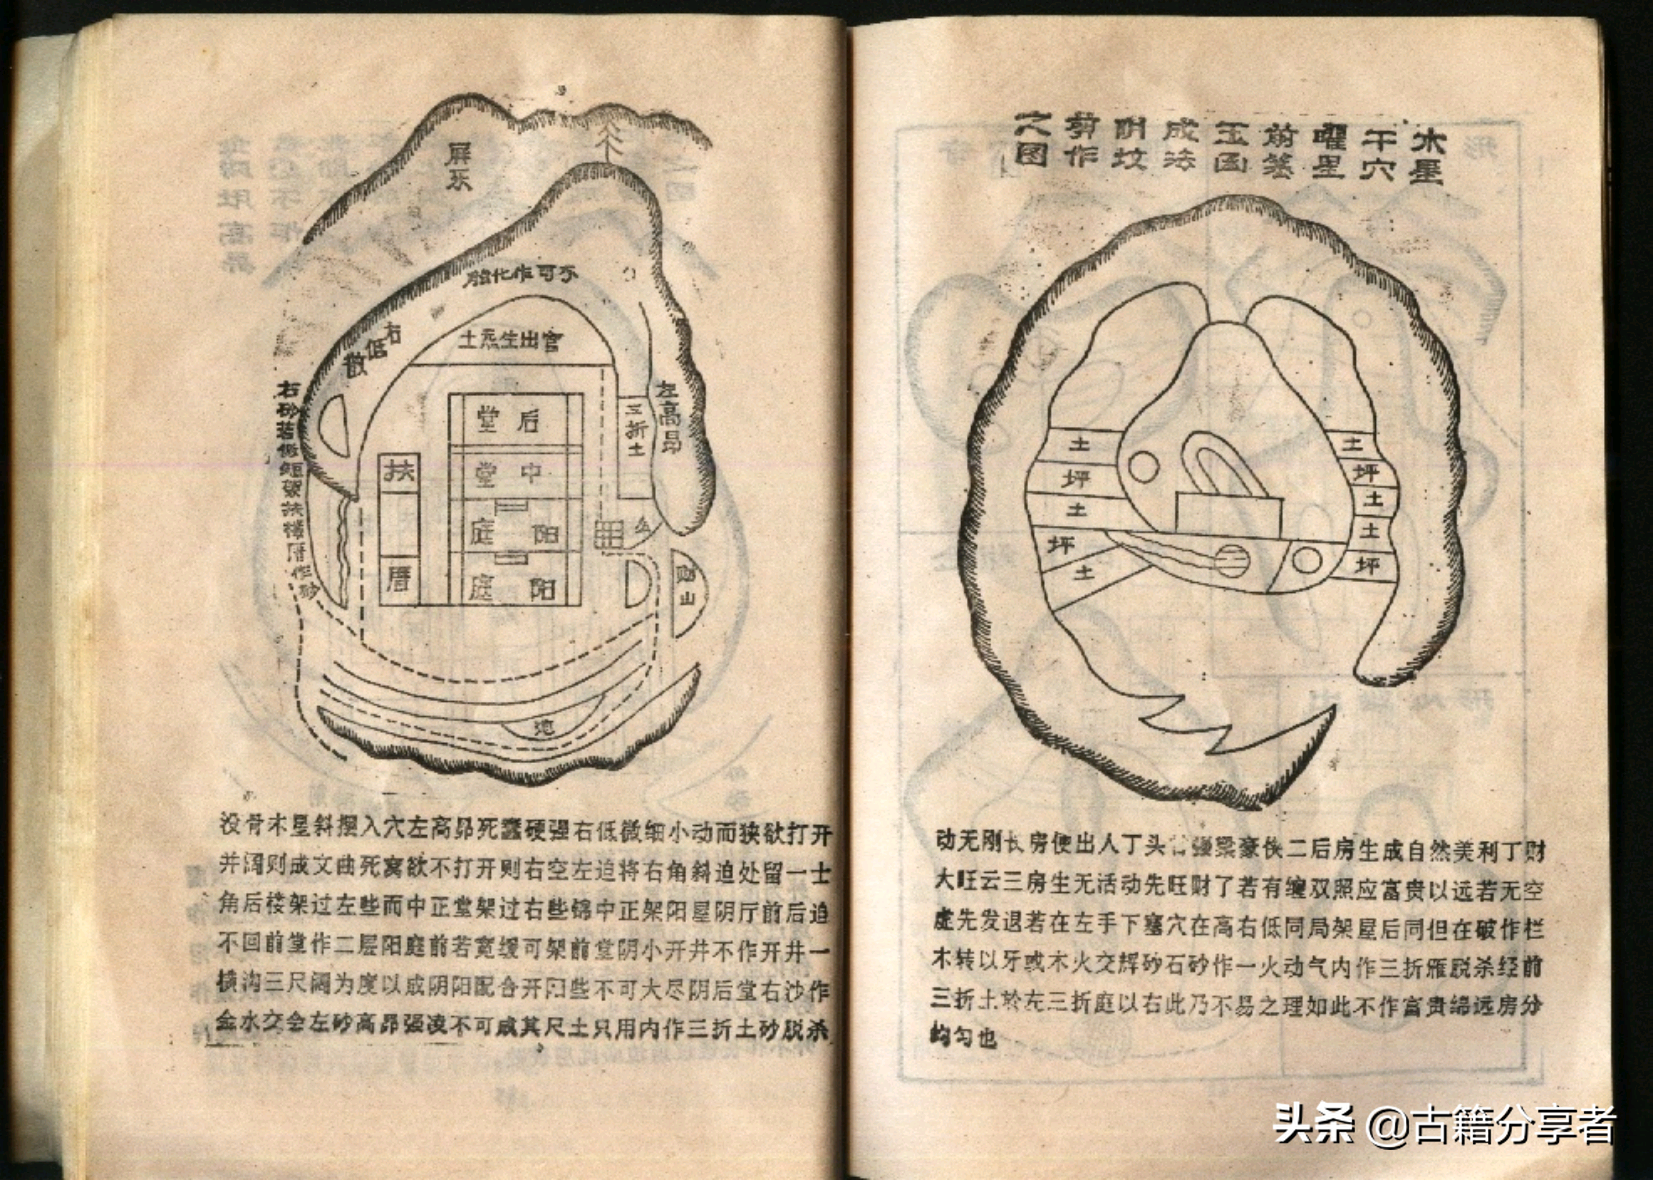 屏乐
胎化作可不
右低微
土炁生出宫
左高昂
三折土
后堂
中堂
阳庭
阳庭
扶
厝
山
池
没骨木星斜摆入穴左高昂死蠢硬强右低微细小动而狭欲打开
并阔则成文曲死窝欲不打开则右空左迫将右角斜迫处留一士
角后楼架过左些而中正堂架过右些锦中正架阳屋阴厅前后迫
不回前堂作二层阳庭前若宽缓可架前堂阴小开井不作开井一
横沟三尺阔为度以成阴阳配合开阳些不可大尽阴后堂右沙作
金水交会左砂高昂强凌不可成其尺土只用内作三折土砂脱杀
木星
干穴
曜星
前基
玉函
成法
阴坟
剪作
之图
土
坪
土
坪
土
土
坪
土
土
坪
动无刚长房便出人丁头强梁豪侠二后房生成自然美利丁财
大旺云三房生无活动先旺财了若有缠双照应富贵以远若无空
虚先发退若在左手下塞穴在高右低同局架屋后同但在破作栏
木转以牙或木火交辉砂石砂作一火动气内作三折雁脱杀经前
三折土於左三折庭以右此乃不易之理如此不作富贵绵远房分
均匀也
头条 @古籍分享者